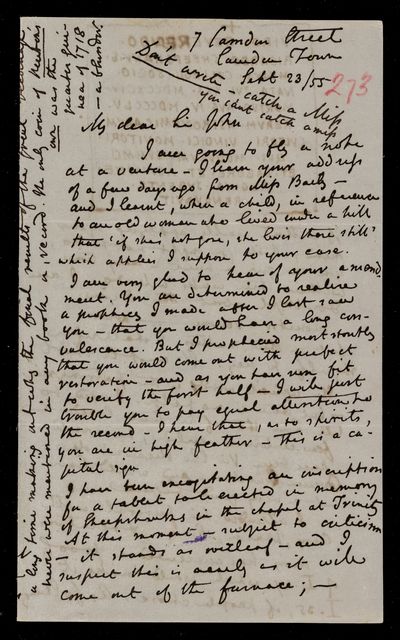 7 Camden Street
Camden Town
Sept 23/55
273
Dont write - catch a Miss
you cant catch a miss
My dear Sir John
I am going to fly a note
at a venture - I learn your address
of a few days ago from Miss Baily -
and I learnt, when a child, in reference
to an old woman who lived under a hill
that 'if she's not gone, she lives there still'
which applies I suppose to your case.
I am very glad to hear of your amend-
ment. You are determined to realise
a prophecy I made after I last saw
you - that you would have a long con-
valescence. But I prophecied most stoutly
that you would come out with perfect
restoration - and as you have seen fit
to verify the first half - I will just
trouble you to pay equal attention to
the second - I hear that, as to spirits,
you are in high feather - this is a ca-
pital sign
I have been excogitating an inscription
for a tablet to be erected in memory
of Sheepshanks in the chapel at Trinity
At this moment - subject to criticism
- it stands as overleaf - and I
suspect this is nearly as it will
come out of the furnace; -
a long time making out why the final results of the great
never were mentioned in any book a record. The only coin of Newton's
own was the
quarter gui-
nea of 1718
- a blunder.